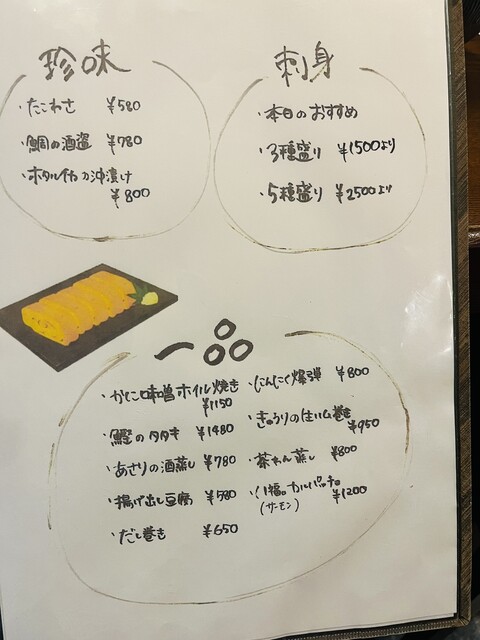 珍味
・たこわさ ¥580
・鯛の酒盗 ¥780
・ホタルイカの沖漬け
¥800
刺身
・本日のおすすめ
・3種盛り ¥1500より
・5種盛り ¥2500より
一品
・かに味噌ホイル焼き
¥1150
・鰹のタタキ ¥1480
・あさりの酒蒸し ¥780
・揚げ出し豆腐 ¥580
・だし巻き ¥650
・にんにく爆弾 ¥800
・きゅうりの生ハム巻き
¥950
・茶わん蒸し ¥800
カルパッチョ
(サーモン) ¥1200